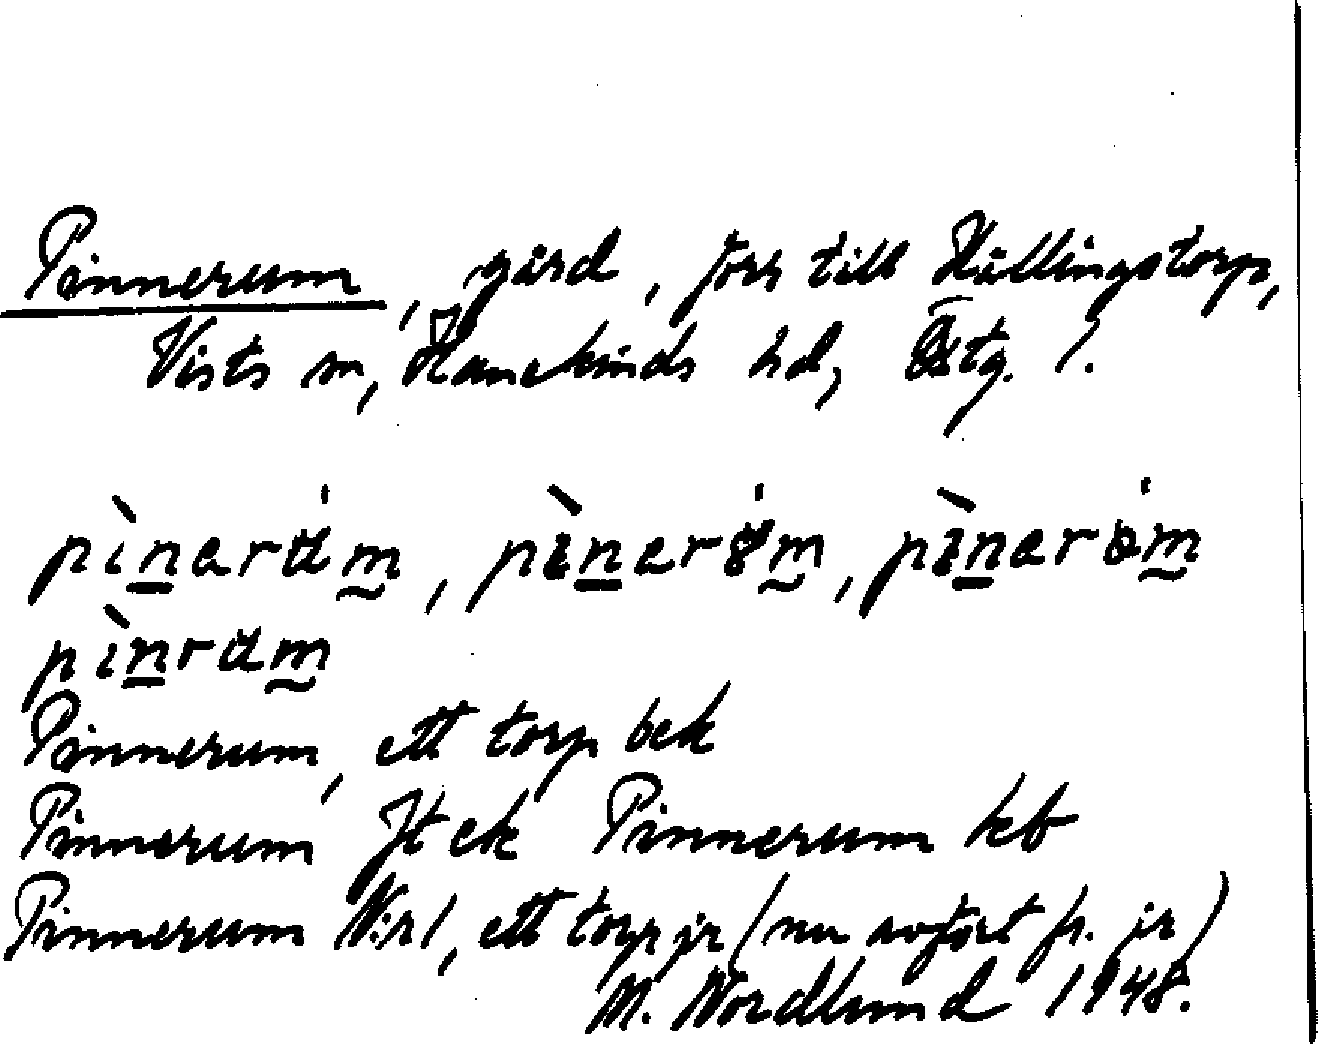 Pinnerum, gård, förr till Hällingstorp,
Vists sn, Hanekinds hd, Östg. l.
pìnarúm, pìnaröm, pìnaröm
pìnrum
Pinnerum, ett torp bek
Pinnerum Jt ek Pinnerum kb
Pinnerum Nr 1, ett torp jr (nu avfört fr. jr)
M. Nordlund 1948.